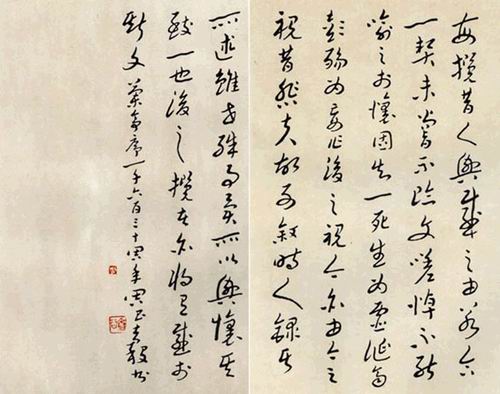 每攬昔人興感之由若合
一契未嘗不臨文嗟悼不能
喻之於懷固知一死生為虛誕齊
彭殤為妄作後之視今亦由今之
視昔悲夫故列敘時人錄其
所述雖世殊事異所以興懷其
致一也後之攬者亦將有感於
斯文 蘭亭序一千六百三十周年 毅书